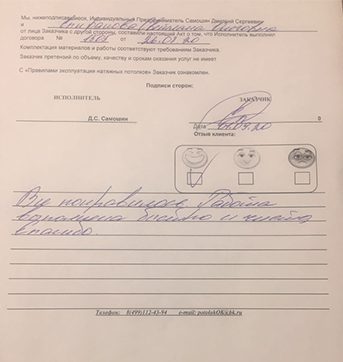 Мы, нижеподписавшиеся, Индивидуальный Предприниматель Самошин Дмитрий Сергеевич
и
от лица Заказчика с другой стороны, составили настоящий Акт о том, что Исполнитель выполнил
договора № от 26.08.20
Комплектация материалов и работы соответствуют требованиям Заказчика.
Заказчик претензий по объему, качеству и срокам оказания услуг не имеет
С «Правилами эксплуатации натяжных потолков» Заказчик ознакомлен.
Подписи сторон:
ИСПОЛНИТЕЛЬ ЗАКАЗЧИК
Д.С. Самошин
Дата
Отзыв клиента:
Все понравилось. Работа
выполнена быстро и чисто,
спасибо.
Телефон: 8(499)112-43-94 e-mail: potolokOK@bk.ru